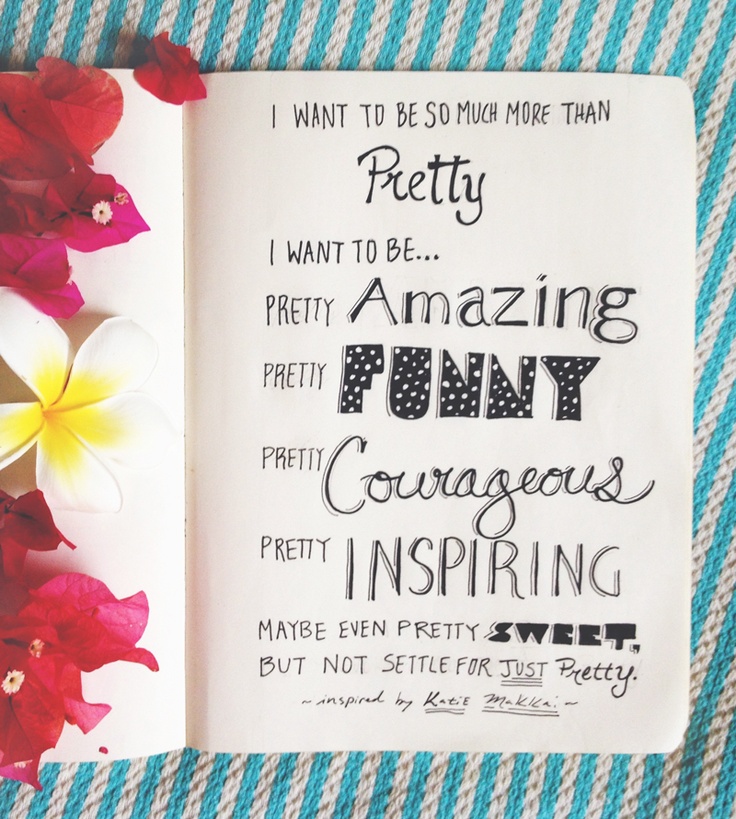 I WANT TO BE SO MUCH MORE THAN
Pretty
I WANT TO BE...
PRETTY Amazing
PRETTY FUNNY
PRETTY Courageous
PRETTY INSPIRING
MAYBE EVEN PRETTY SWEET,
BUT NOT SETTLE FOR JUST Pretty.
~inspired by Katie Makkai~